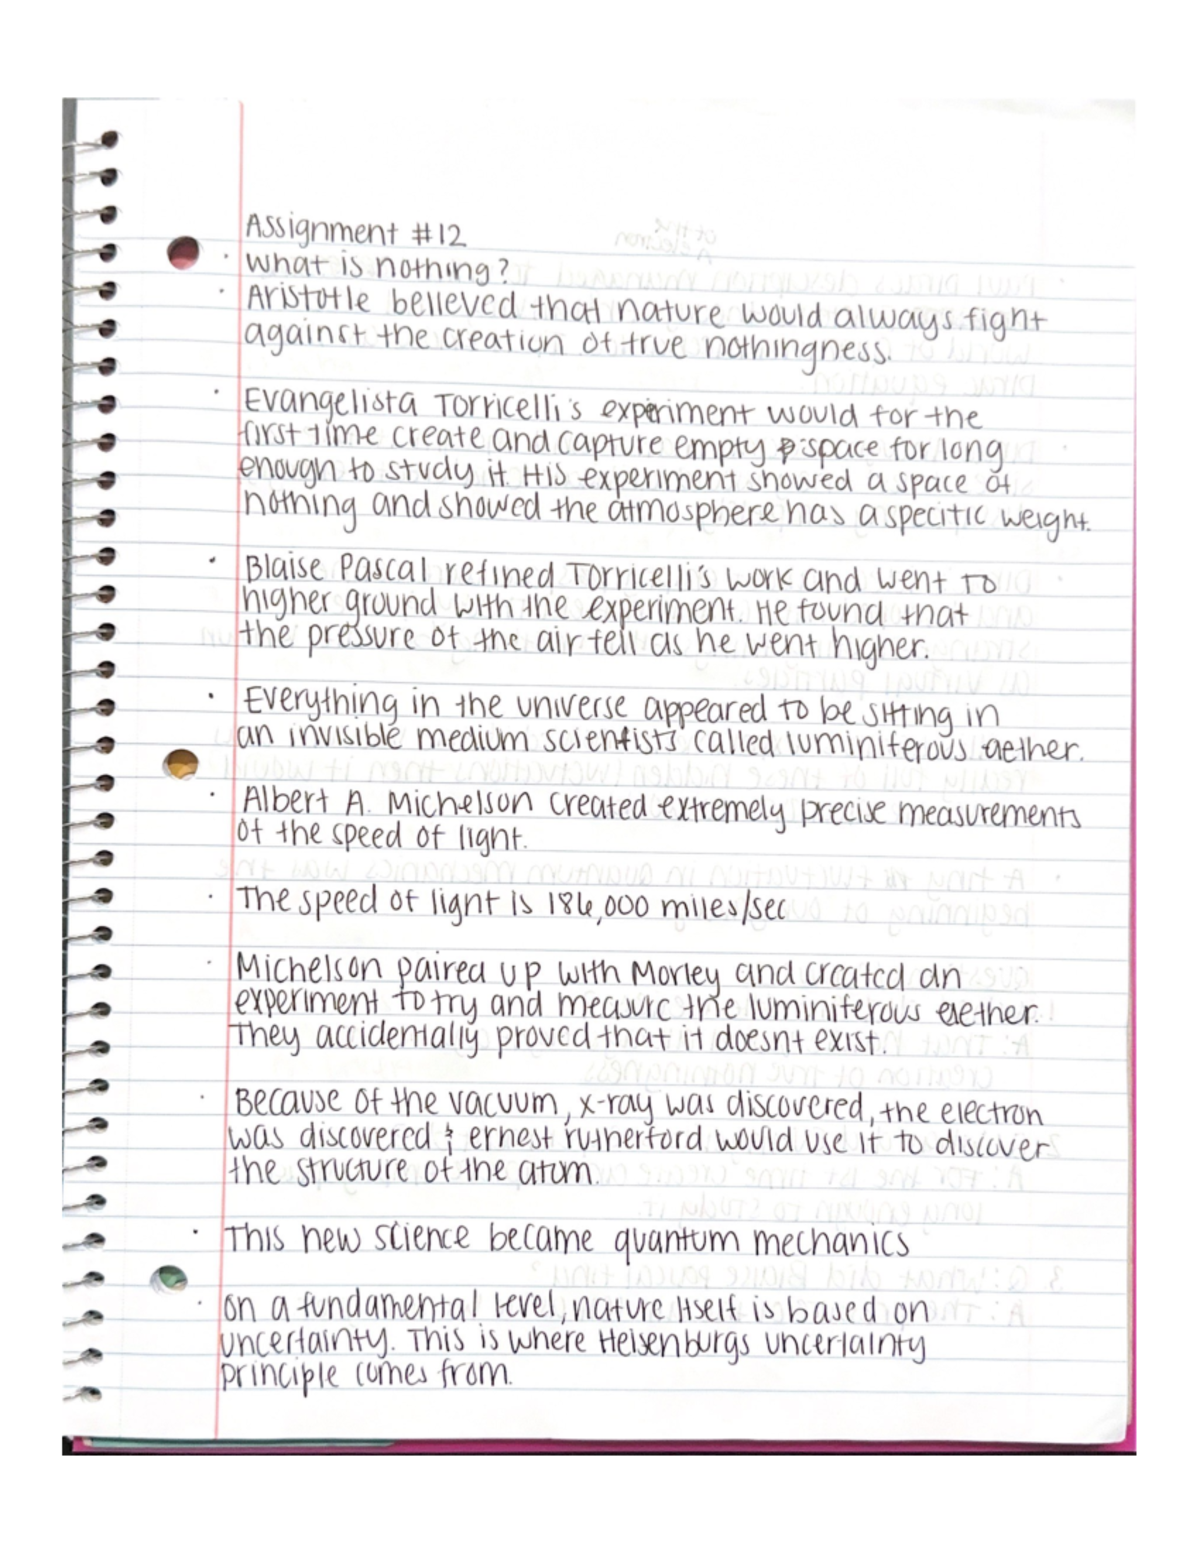 Assignment #12
· What is nothing?
· Aristotle believed that nature would always fight
against the creation of true nothingness.
· Evangelista Torricelli's experiment would for the
first time create and capture empty space for long
enough to study it. His experiment showed a space of
nothing and showed the atmosphere has a specific weight.
· Blaise Pascal refined Torricelli's work and went to
higher ground with the experiment. He found that
the pressure of the air fell as he went higher.
· Everything in the universe appeared to be sitting in
an invisible medium scientists called luminiferous aether.
· Albert A. Michelson created extremely precise measurements
of the speed of light.
· The speed of light is 186,000 miles/sec
· Michelson paired up with Morley and created an
experiment to try and measure the luminiferous aether.
They accidentally proved that it doesnt exist.
· Because of the vacuum, x-ray was discovered, the electron
was discovered & ernest rutherford would use it to discover
the structure of the atom.
· This new science became quantum mechanics
· on a fundamental level, nature itself is based on
uncertainty. This is where Heisenburgs uncertainty
principle comes from.